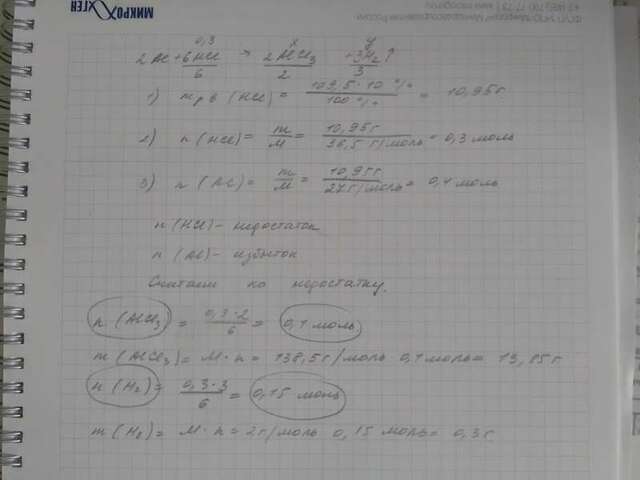 МИКРО ГЕН
0,3 x y
2Al + 6HCl → 2AlCl3 + 3H2↑
6 2 3
1) m р.в (HCl) = 109,5·10% / 100% = 10,95г
2) n (HCl) = m/M = 10,95г / 36,5 г/моль = 0,3 моль
3) n (Al) = m/M = 10,9гг / 27г/моль = 0,4 моль
n (HCl) – недостаток
n (Al) – избыток
Считаем по недостатку.
n (AlCl3) = 0,3·2 / 6 = 0,1 моль.
m (AlCl3) = M·n = 138,5г/моль 0,1 моль = 13,85г
n (H2) = 0,3·3 / 6 = 0,15 моль
m (H2) = M·n = 2г/моль 0,15 моль = 0,3г